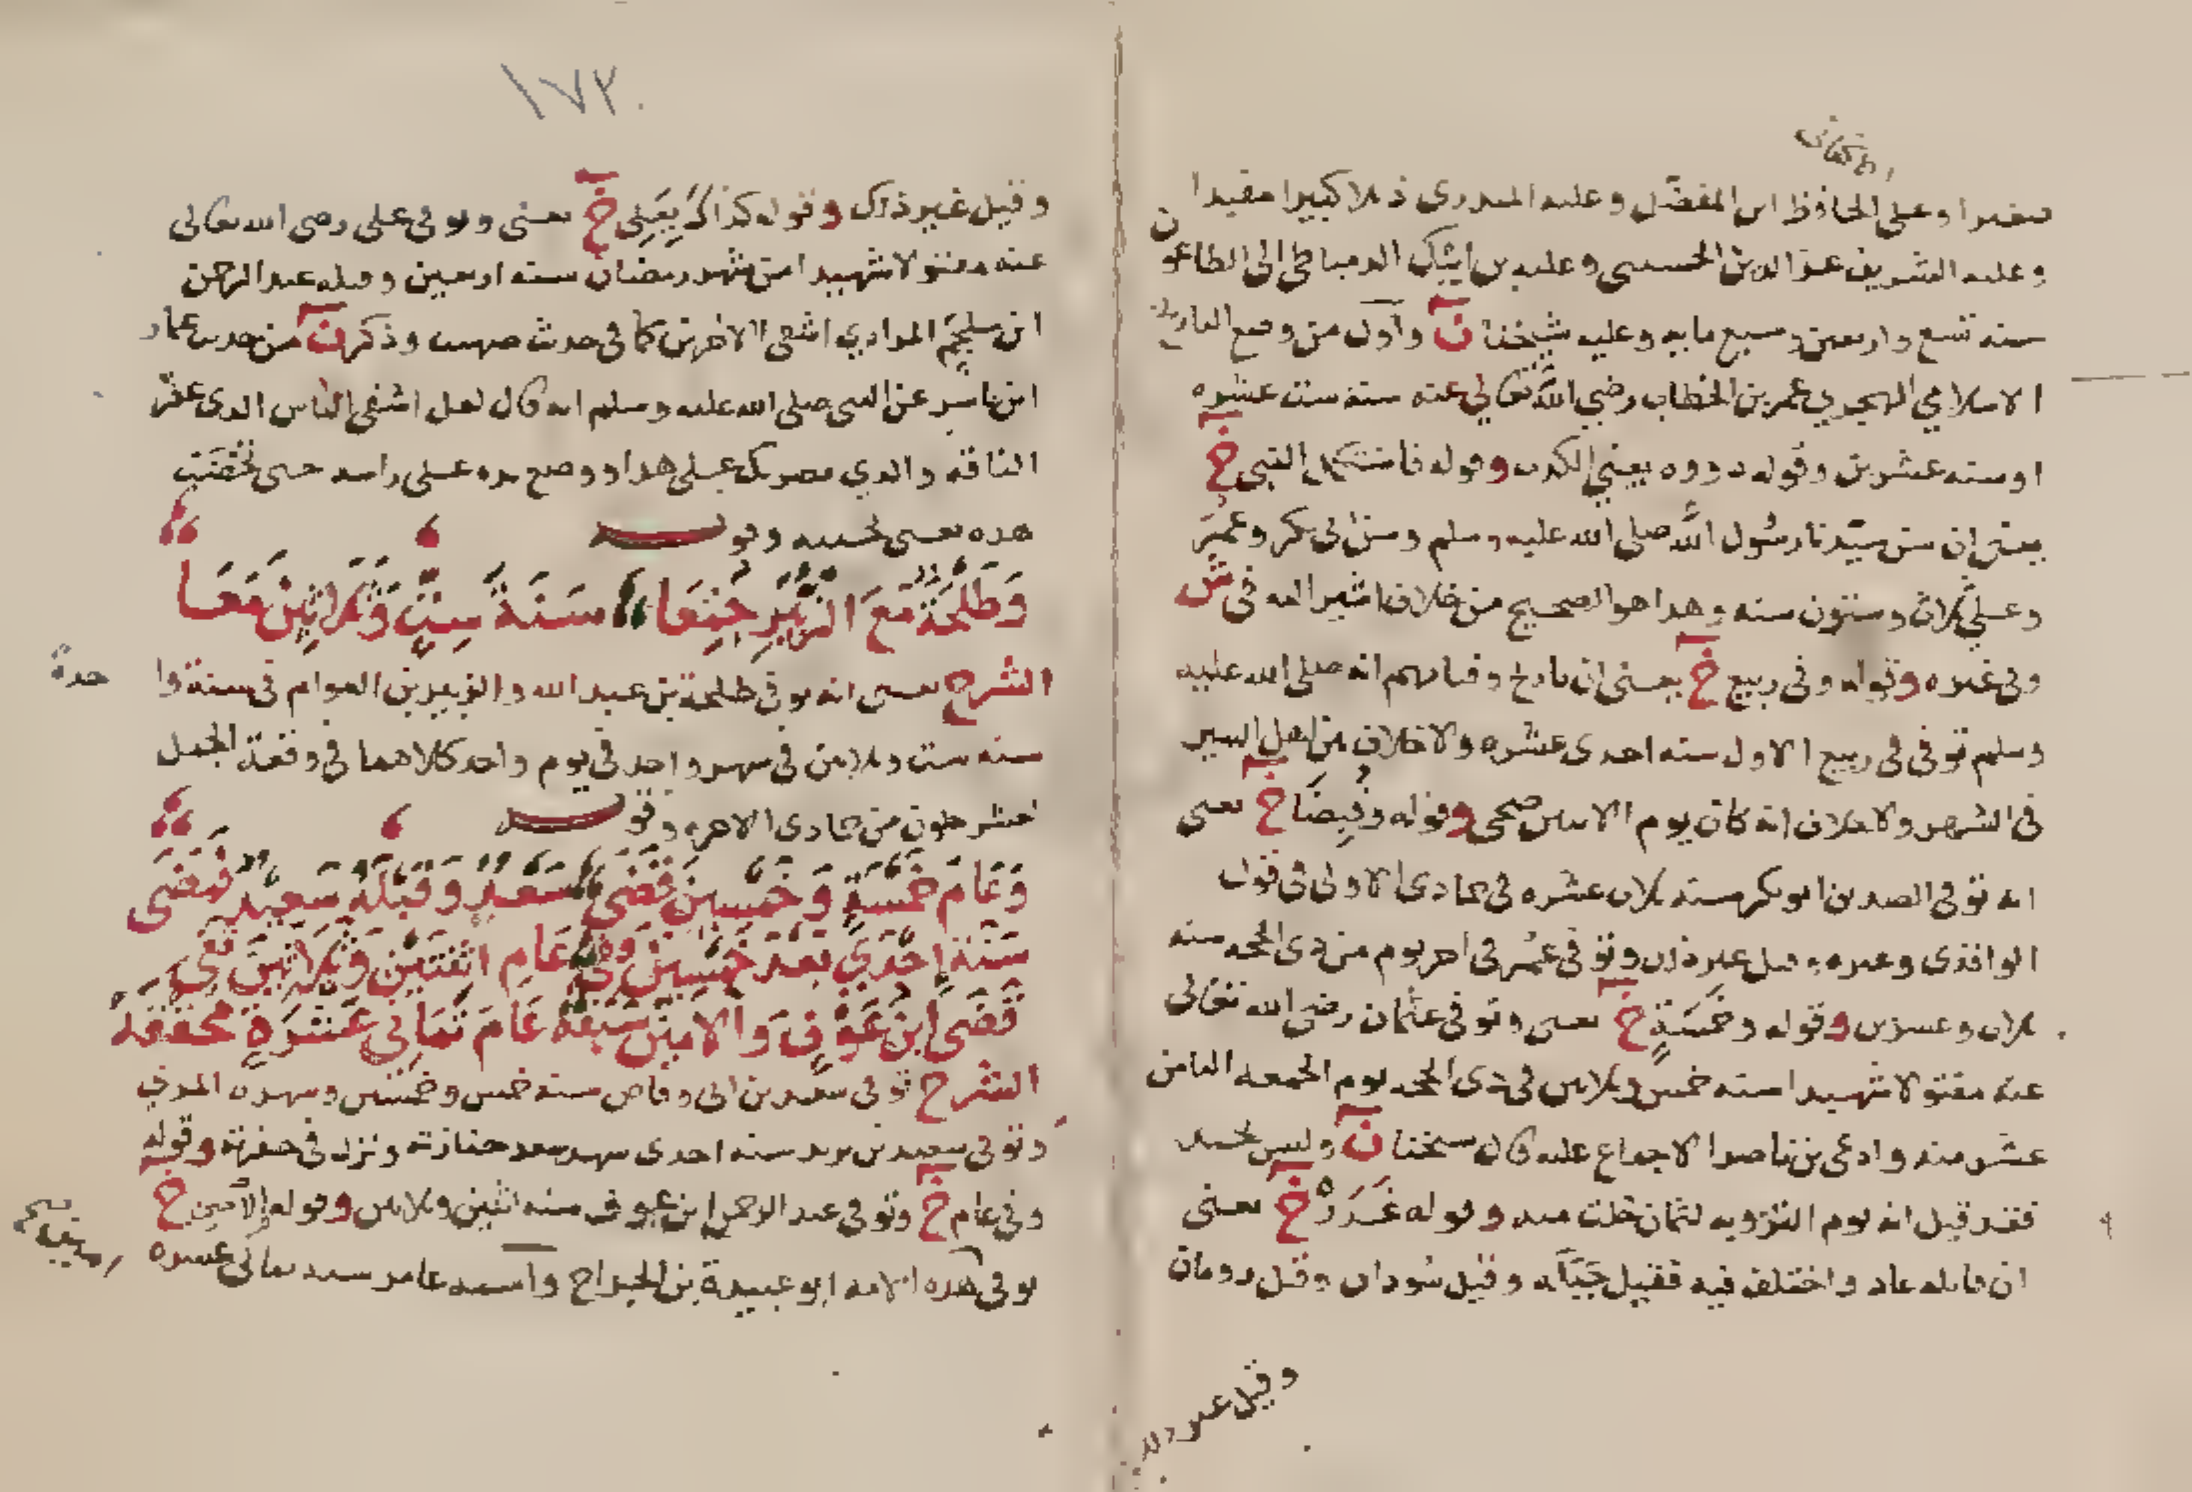 صغيرا وعلى الحافظ ابن المفضل وعليه المنذري ذيلا كبيرا مفيدا
وعليه الشريف عز الدين الحسيني وعليه بن ايبك الدمياطي الى الطاعون
سنه تسع واربعين وسبع مايه وعليه شيخنا ن واول من وضع التاريخ
الاسلامي الهجري عمر بن الخطاب رضي الله تعالي عنه سنة ست عشره
او سنه عشرين وقوله ذووه يعني الكذب وقوله فاستكمل النبي خ
يعني ان سن سيدنا رسول الله صلى الله عليه وسلم وسن ابي بكر وعمر
وعلي ثلاث وستون سنه وهذا هو الصحيح من خلاف اشير اليه في ش
وفي غيره وقوله وفي ربيع خ يعني ان تاريخ وفاتهم انه صلى الله عليه
وسلم توفى فى ربيع الاول سنه احدى عشره ولا خلاف بين اهل السير
فى الشهر ولا خلاف انه كان يوم الاثنين ضحى وقوله وقبضا خ يعنى
انه توفى الصديق ابو بكر سنه ثلاث عشره فى جمادى الاولى فى قول
الواقدى وغيره وقيل غير ذلك وتوفى عمر فى اخر يوم من ذى الحجه سنه
ثلاث وعشرين وقوله وخمسة خ يعنى وتوفى عثمان رضي الله تعالى
عنه مقتولا شهيدا سنه خمس وثلاثين فى ذى الحجه يوم الجمعه الثامن
عشر منه وادعى بن ناصر الاجماع عليه قال شيخنا ن وليس بجيد
فقد قيل انه يوم التروية لثمان خلت منه وقوله غدر خ يعنى
ان قاتله عاد واختلف فيه فقيل جبلة وقيل سودان وقيل رومان
وقيل غير ذلك
١٧٢
وقيل غير ذلك وقوله كذاك بعلي خ يعنى وتوفى على رضى الله تعالى
عنه مقتولا شهيدا من شهر رمضان سنه اربعين وقتله عبد الرحمن
ابن ملجم المرادي اشقى الاخرين كما فى حديث صهيب وذكر ن من حديث عمار
ابن ياسر عن النبى صلى الله عليه وسلم انه قال لعلى اشقى الناس الذى عقر
الناقة والذي يضربك على هذا ووضع يده على راسه حتى تخضب
هذه يعنى لحيته وقوله
وطلحة مع الزبير جمعا سنة ست وثلاثين معا
الشرح يعنى انه توفى طلحة بن عبد الله والزبير بن العوام فى سنة واحدة
سنه ست وثلاثين فى شهر واحد فى يوم واحد كلاهما فى وقعة الجمل
لعشر خلون من جمادى الاخره وقوله
وعام خمسة وخمسين قضى سعد وقبله سعيد فمضى
سنة إحدى بعد خمسين وفي عام اثنتين وثلاثين تفي
قضى ابن عوف والامين سبقه عام ثماني عشرة محققه
الشرح توفى سعد بن ابى وقاص سنه خمس وخمسين وشهره المزي
وتوفى سعيد بن زيد سنه احدى شهد سعد جنازته ونزل فى حفرته وقوله
وفى عام خ وتوفى عبد الرحمن بن عوف سنه اثنين وثلاثين وقوله والامين خ
توفى هذه الامه ابو عبيدة بن الجراح واسمه عامر سنه ثمانى عشره